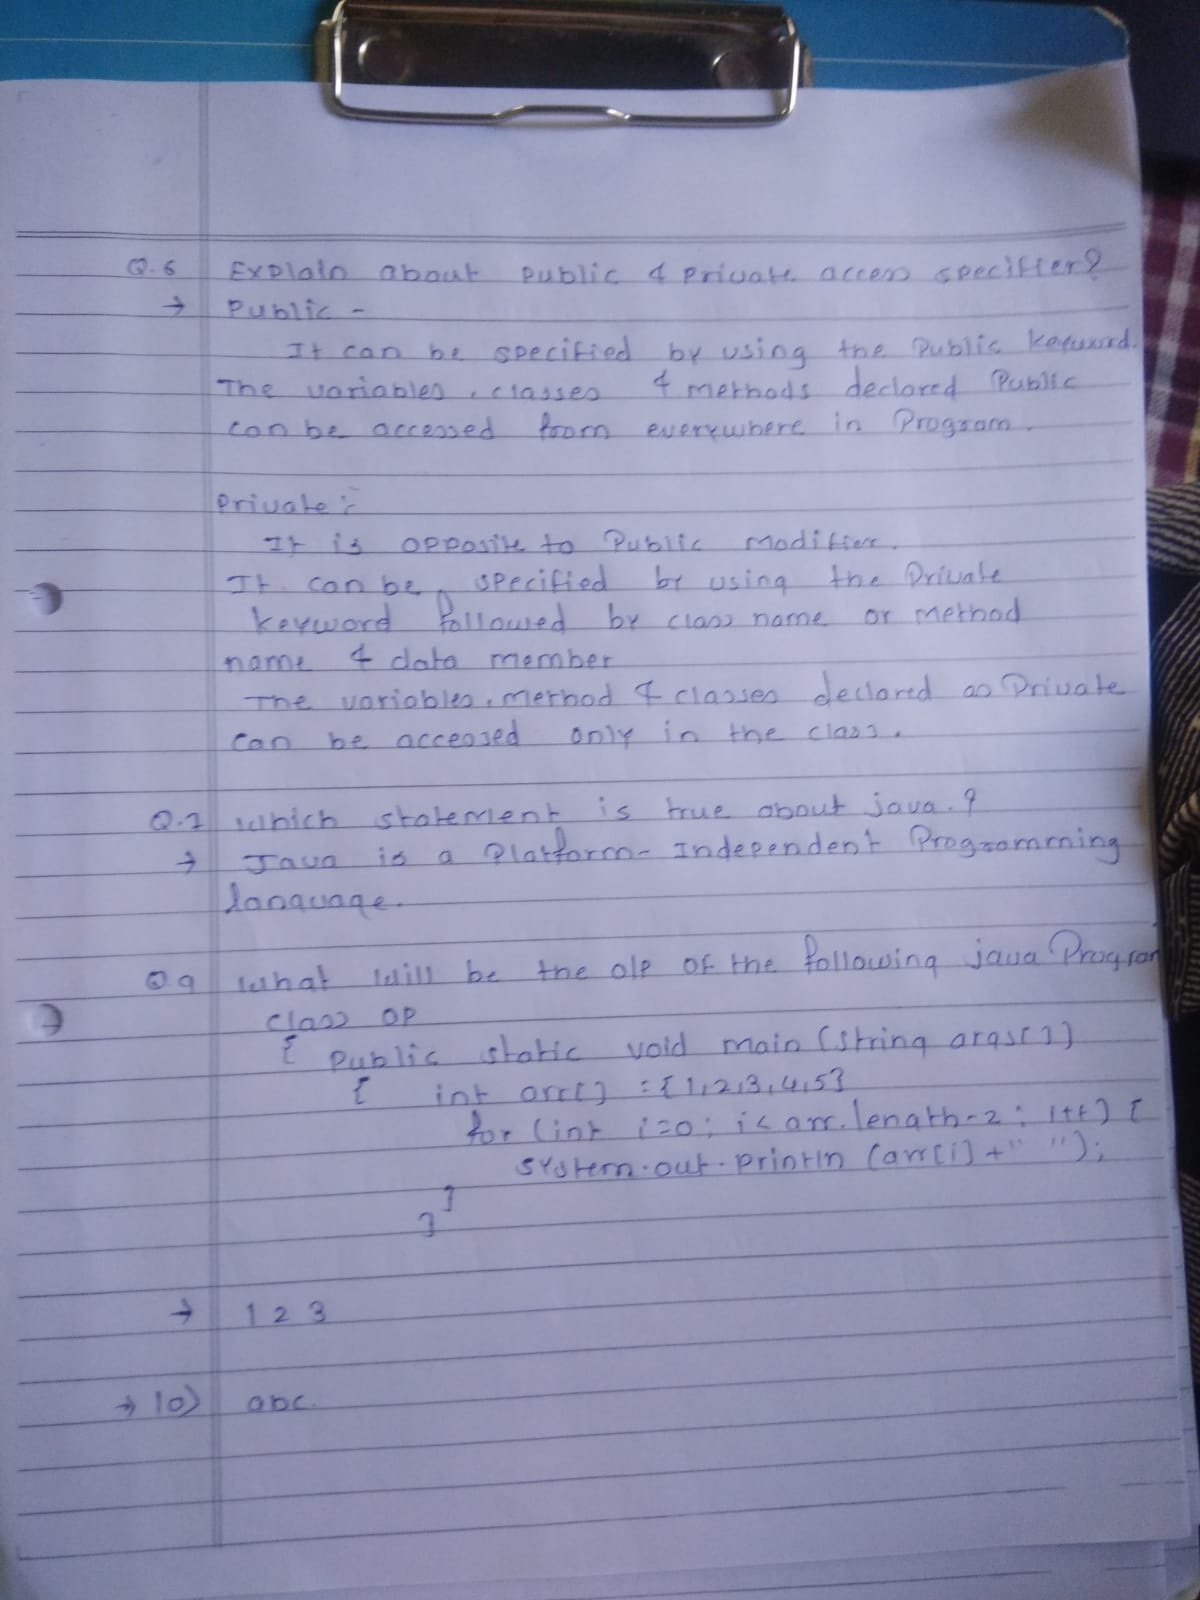 Q.6 Explain about public & private access specifier?
→ Public -
It can be specified by using the Public keyword.
The variables, classes & methods declared Public
can be accessed from everywhere in Program.
Private :-
It is opposite to Public modifier.
It can be specified by using the Private
keyword followed by class name or method
name & data member
The variables, method & classes declared as Private
can be accessed only in the class.
Q.7 which statement is true about java.?
→ Java is a Platform- Independent Programming
language.
Q.9 what will be the o/p of the following java Program
class OP
{ Public static void main (String args[])
{ int arr[] = {1,2,3,4,5}
for (int i=0; i< arr.length-2; i++) {
System.out.println (arr[i] + " ");
}
}
→ 1 2 3
→ 10) abc.